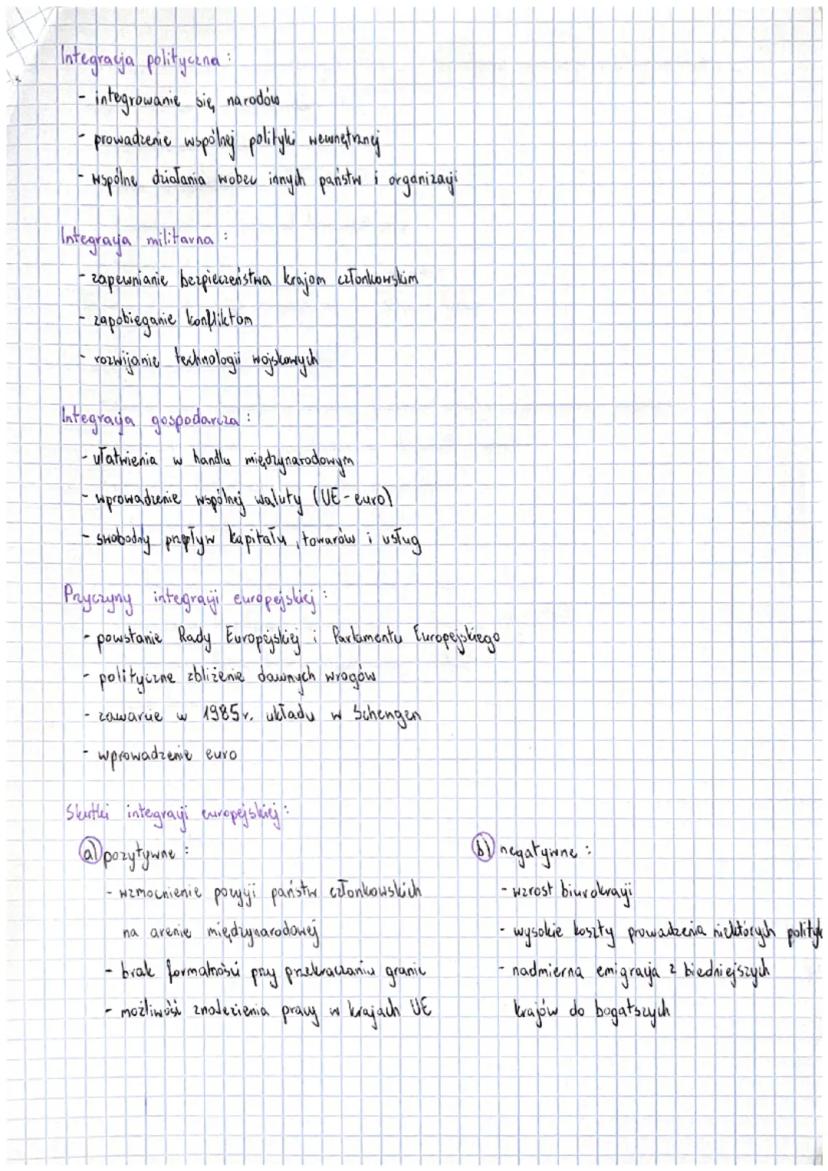 Integracja polityczna :
- integrowanie się narodów
- prowadzenie wspólnej polityki wewnętrznej
- wspólne działania wobec innych państw i organizacji
Integracja militarna :
- zapewnianie bezpieczeństwa krajom członkowskim
- zapobieganie konfliktom
- rozwijanie technologii wojskowych
Integracja gospodarcza :
- ułatwienia w handlu międzynarodowym
- wprowadzenie wspólnej waluty (UE - euro)
- swobodny przepływ kapitału, towarów i usług
Przyczyny integracji europejskiej :
- powstanie Rady Europejskiej i Parlamentu Europejskiego
- polityczne zbliżenie dawnych wrogów
- zawarcie w 1985r. układu w Schengen
- wprowadzenie euro
Skutki integracji europejskiej :
a) pozytywne :
- wzmocnienie pozycji państw członkowskich
na arenie międzynarodowej
- brak formalności przy przekraczaniu granic
- możliwość znalezienia pracy w krajach UE
b) negatywne :
- wzrost biurokracji
- wysokie koszty prowadzenia niektórych polityk
- nadmierna emigracja z biedniejszych
krajów do bogatszych